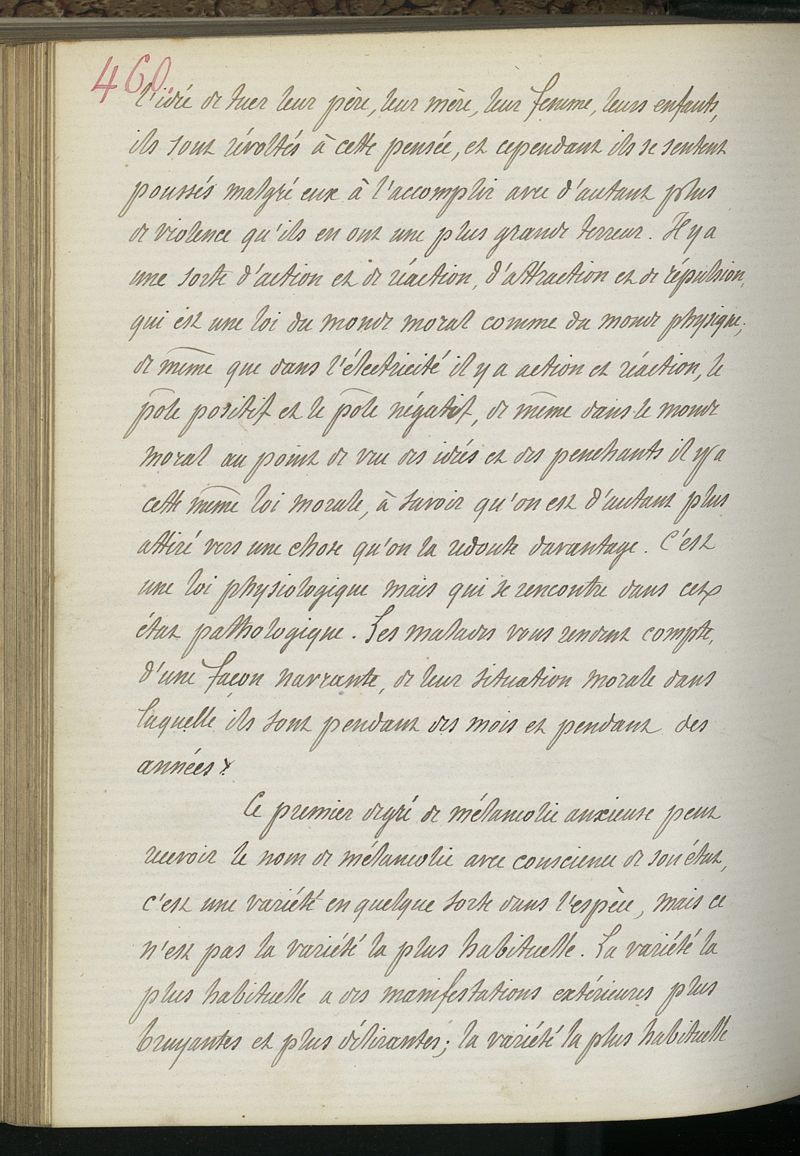 460.
l'idée de tuer leur père, leur mère, leur femme, leurs enfants,
ils sont révoltés à cette pensée, et cependant ils se sentent
poussés malgré eux à l'accomplir avec d'autant plus
de violence qu'ils en ont une plus grande terreur. Il y a
une sorte d'action et de réaction, d'attraction et de répulsion,
qui est une loi du monde moral comme du monde physique;
de même que dans l'électricité il y a action et réaction, le
pôle positif et le pôle négatif, de même dans le monde
moral au point de vue des idées et des penchants il y a
cette même loi morale, à savoir qu'on est d'autant plus
attiré vers une chose qu'on la redoute davantage. C'est
une loi physiologique mais qui se rencontre dans cet
état pathologique. Les malades vous rendent compte,
d'une façon navrante, de leur situation morale dans
laquelle ils sont pendant des mois et pendant des
années.
Ce premier degré de mélancolie anxieuse peut
recevoir le nom de mélancolie avec conscience de son état,
c'est une variété en quelque sorte dans l'espèce, mais ce
n'est pas la variété la plus habituelle. La variété la
plus habituelle a des manifestations extérieures plus
bruyantes et plus délirantes; la variété la plus habituelle